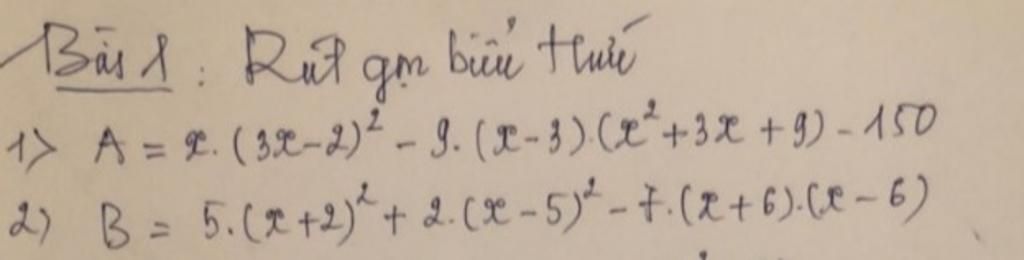 Bài 1: Rút gọn biểu thức
1) A = x.(3x-2)² - 9.(x-3).(x²+3x+9) - 150
2) B = 5.(x+2)² + 2.(x-5)² - 7.(x+6).(x-6)